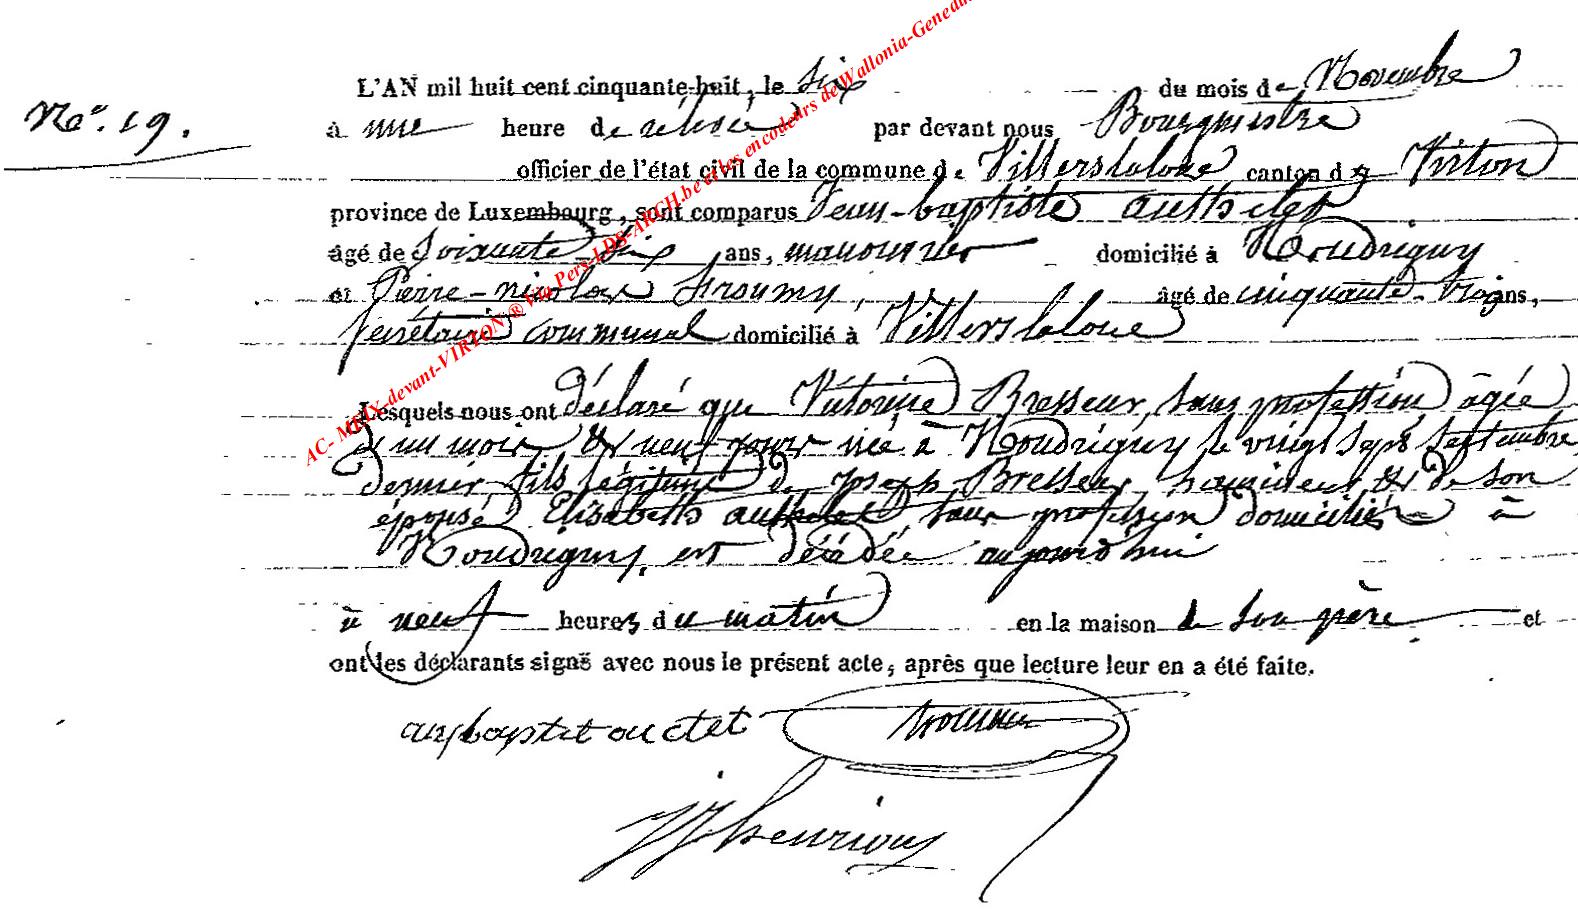 No. 19.
L'AN mil huit cent cinquante-huit, le six du mois de Novembre
à une heure de relevée par devant nous Bourgmestre
officier de l'état civil de la commune de Villerslaloue canton de Virton
province de Luxembourg, sont comparus Jean-baptiste authelet
âgé de soixante-dix ans, manouvrier domicilié à Houdrigny
et Pierre-nicolas, âgé de cinquante-trois ans,
secrétaire communal domicilié à Villerslaloue
Lesquels nous ont déclaré que Victorine Bresseur, sans profession âgée
d'un mois & neuf jours née à Houdrigny le vingt sept septembre
dernier, fils légitime de joseph Bresseur, & de son
épouse Elisabeth authelet, sans profession domiciliés à
Houdrigny, est décédée aujourd'hui
à neuf heures du matin en la maison de son père et
ont les déclarants signé avec nous le présent acte, après que lecture leur en a été faite.
JJ henrion
AC- MEIX-devant-VIRTON ® Via Pers-LDS-ARCH.be et les encodeurs de Wallonia-Genealo